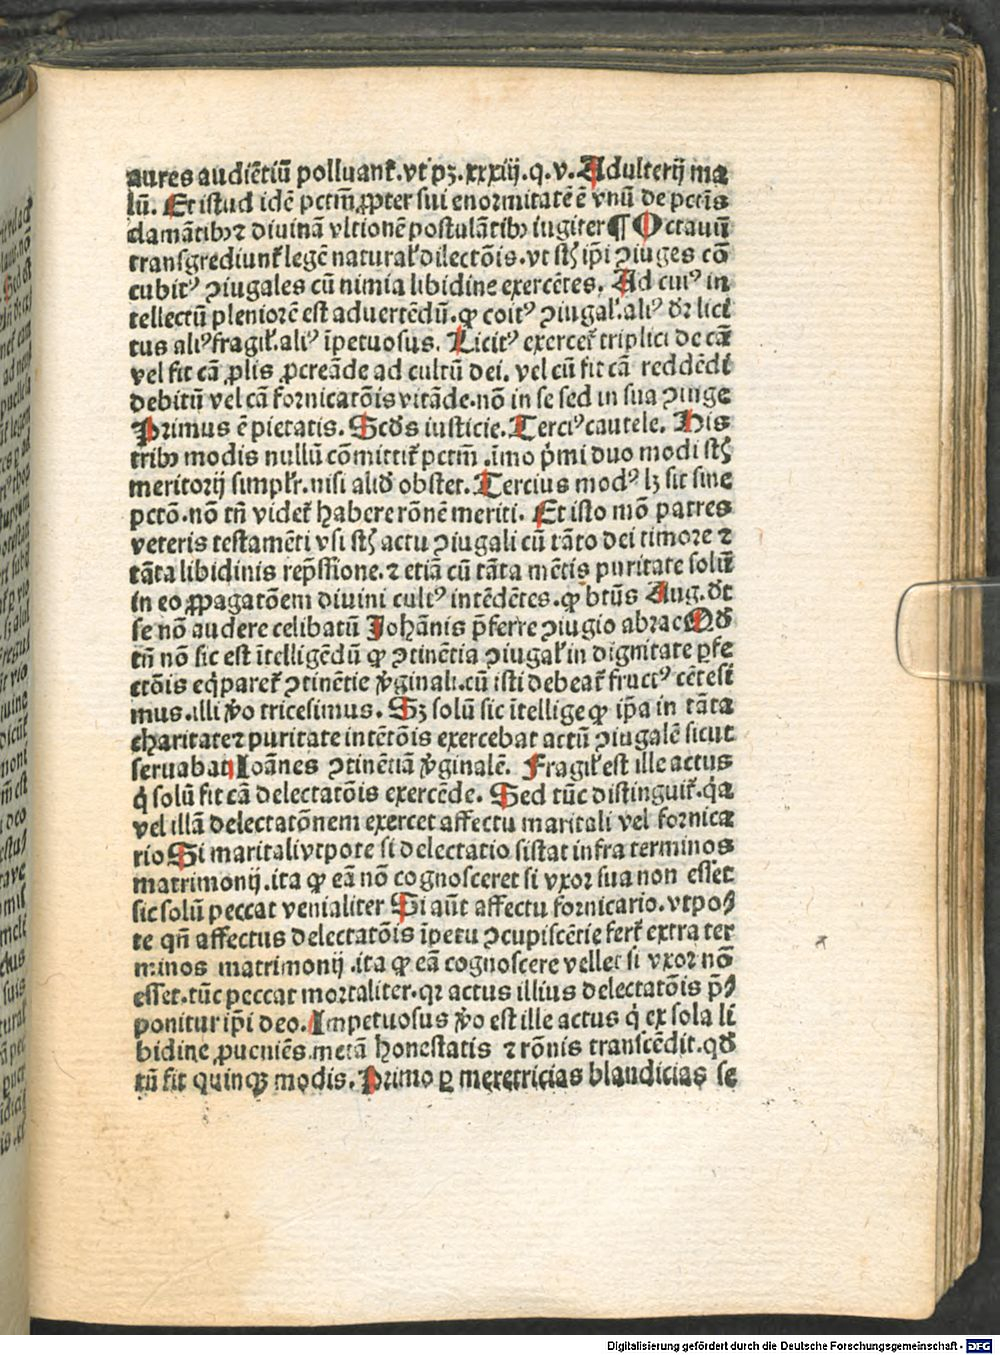 aures audiētiū polluant̄. vt pꝫ. xxxiij. q. v. Adulterij ma
lū. Et istud idē pctm̄ ꝓpter sui enormitatē ē vnū de pctīs
clamātibꝰ ⁊ diuinā vltionē postulātibꝰ iugiter ¶ Octauū
transgrediunt̄ legē natural̄ dilectōis. vt st̄ ip̄i ꝯiuges cō
cubitꝰ ꝯiugales cū nimia libidine exercētes. Ad cuiꝰ in
tellectū pleniorē est aduertēdū. ꝙ coitꝰ ꝯiugal̄. aliꝰ dr̄ lici
tus aliꝰ fragil̄. aliꝰ īpetuosus. Licitꝰ exercet̄ triplici de cā
vel fit cā ꝓlis ꝓcreāde ad cultū dei. vel cū fit cā reddēdi
debitū vel cā fornicatōis vitāde. nō in se sed in sua ꝯiuge
Primus ē pietatis. Scd̄s iusticie. Terciꝰ cautele. His
tribꝰ modis nullū cōmittit̄ pctm̄. īmo p̄mi duo modi st̄
meritorij simpl̄r. nisi aliđ obstet. Tercius modꝰ lꝫ sit sine
pctō. nō tn̄ videt̄ habere rōnē meriti. Et isto mō patres
veteris testamēti vsi st̄ actu ꝯiugali cū tāto dei timore ⁊
tāta libidinis rep̄ssione. ⁊ etiā cū tāta mētis puritate solū
in eo ꝓpagatōem diuini cultꝰ intēdētes. ꝙ btūs Aug. dt̄
se nō audere celibatū Johānis p̄ferre ꝯiugio abrae Qđ
tn̄ nō sic est ītelligēdū ꝙ ꝯtinētia ꝯiugal̄ in dignitate ꝑfe
ctōis eq̄paret̄ ꝯtinētie v̄ginali. cū isti debeat̄ fructꝰ cētesi
mus. illi v̄o tricesimus. Sꝫ solū sic ītellige ꝙ ip̄a in tāta
charitate ⁊ puritate intētōis exercebat actū ꝯiugalē sicut
seruabat Ioānes ꝯtinētiā v̄ginalē. Fragil̄ est ille actus
q̇ solū fit cā delectatōis exercēde. Sed tūc distinguit̄. q̇a
vel illā delectatōnem exercet affectu maritali vel fornica
rio Si maritali vtpote si delectatio sistat infra terminos
matrimonij. ita ꝙ eā nō cognosceret si vxor sua non esset
sic solū peccat venialiter Si aūt affectu fornicario. vtpo
te qn̄ affectus delectatōis īpetu ꝯcupiscētie fert̄ extra ter
minos matrimonij. ita ꝙ eā cognoscere vellet si vxor nō
esset. tūc peccat mortaliter. qꝛ actus illius delectatōis p̄
ponitur ip̄i deo. Impetuosus v̄o est ille actus q̇ ex sola li
bidine ꝓueniēs. metā honestatis ⁊ rōnis transcēdit. qđ
tn̄ fit quinqꝫ modis. Primo ꝑ meretricias blandicias se
Digitalisierung gefördert durch die Deutsche Forschungsgemeinschaft - DFG